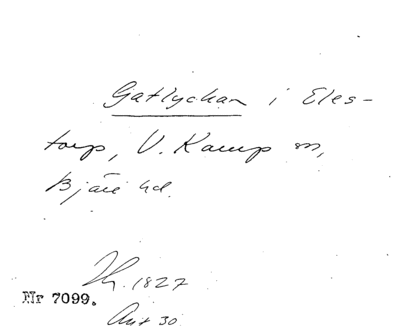 Gatlyckan i Eles-
torp, V. Karup sn,
Bjäre hd.
Nr 7099.
1827
30